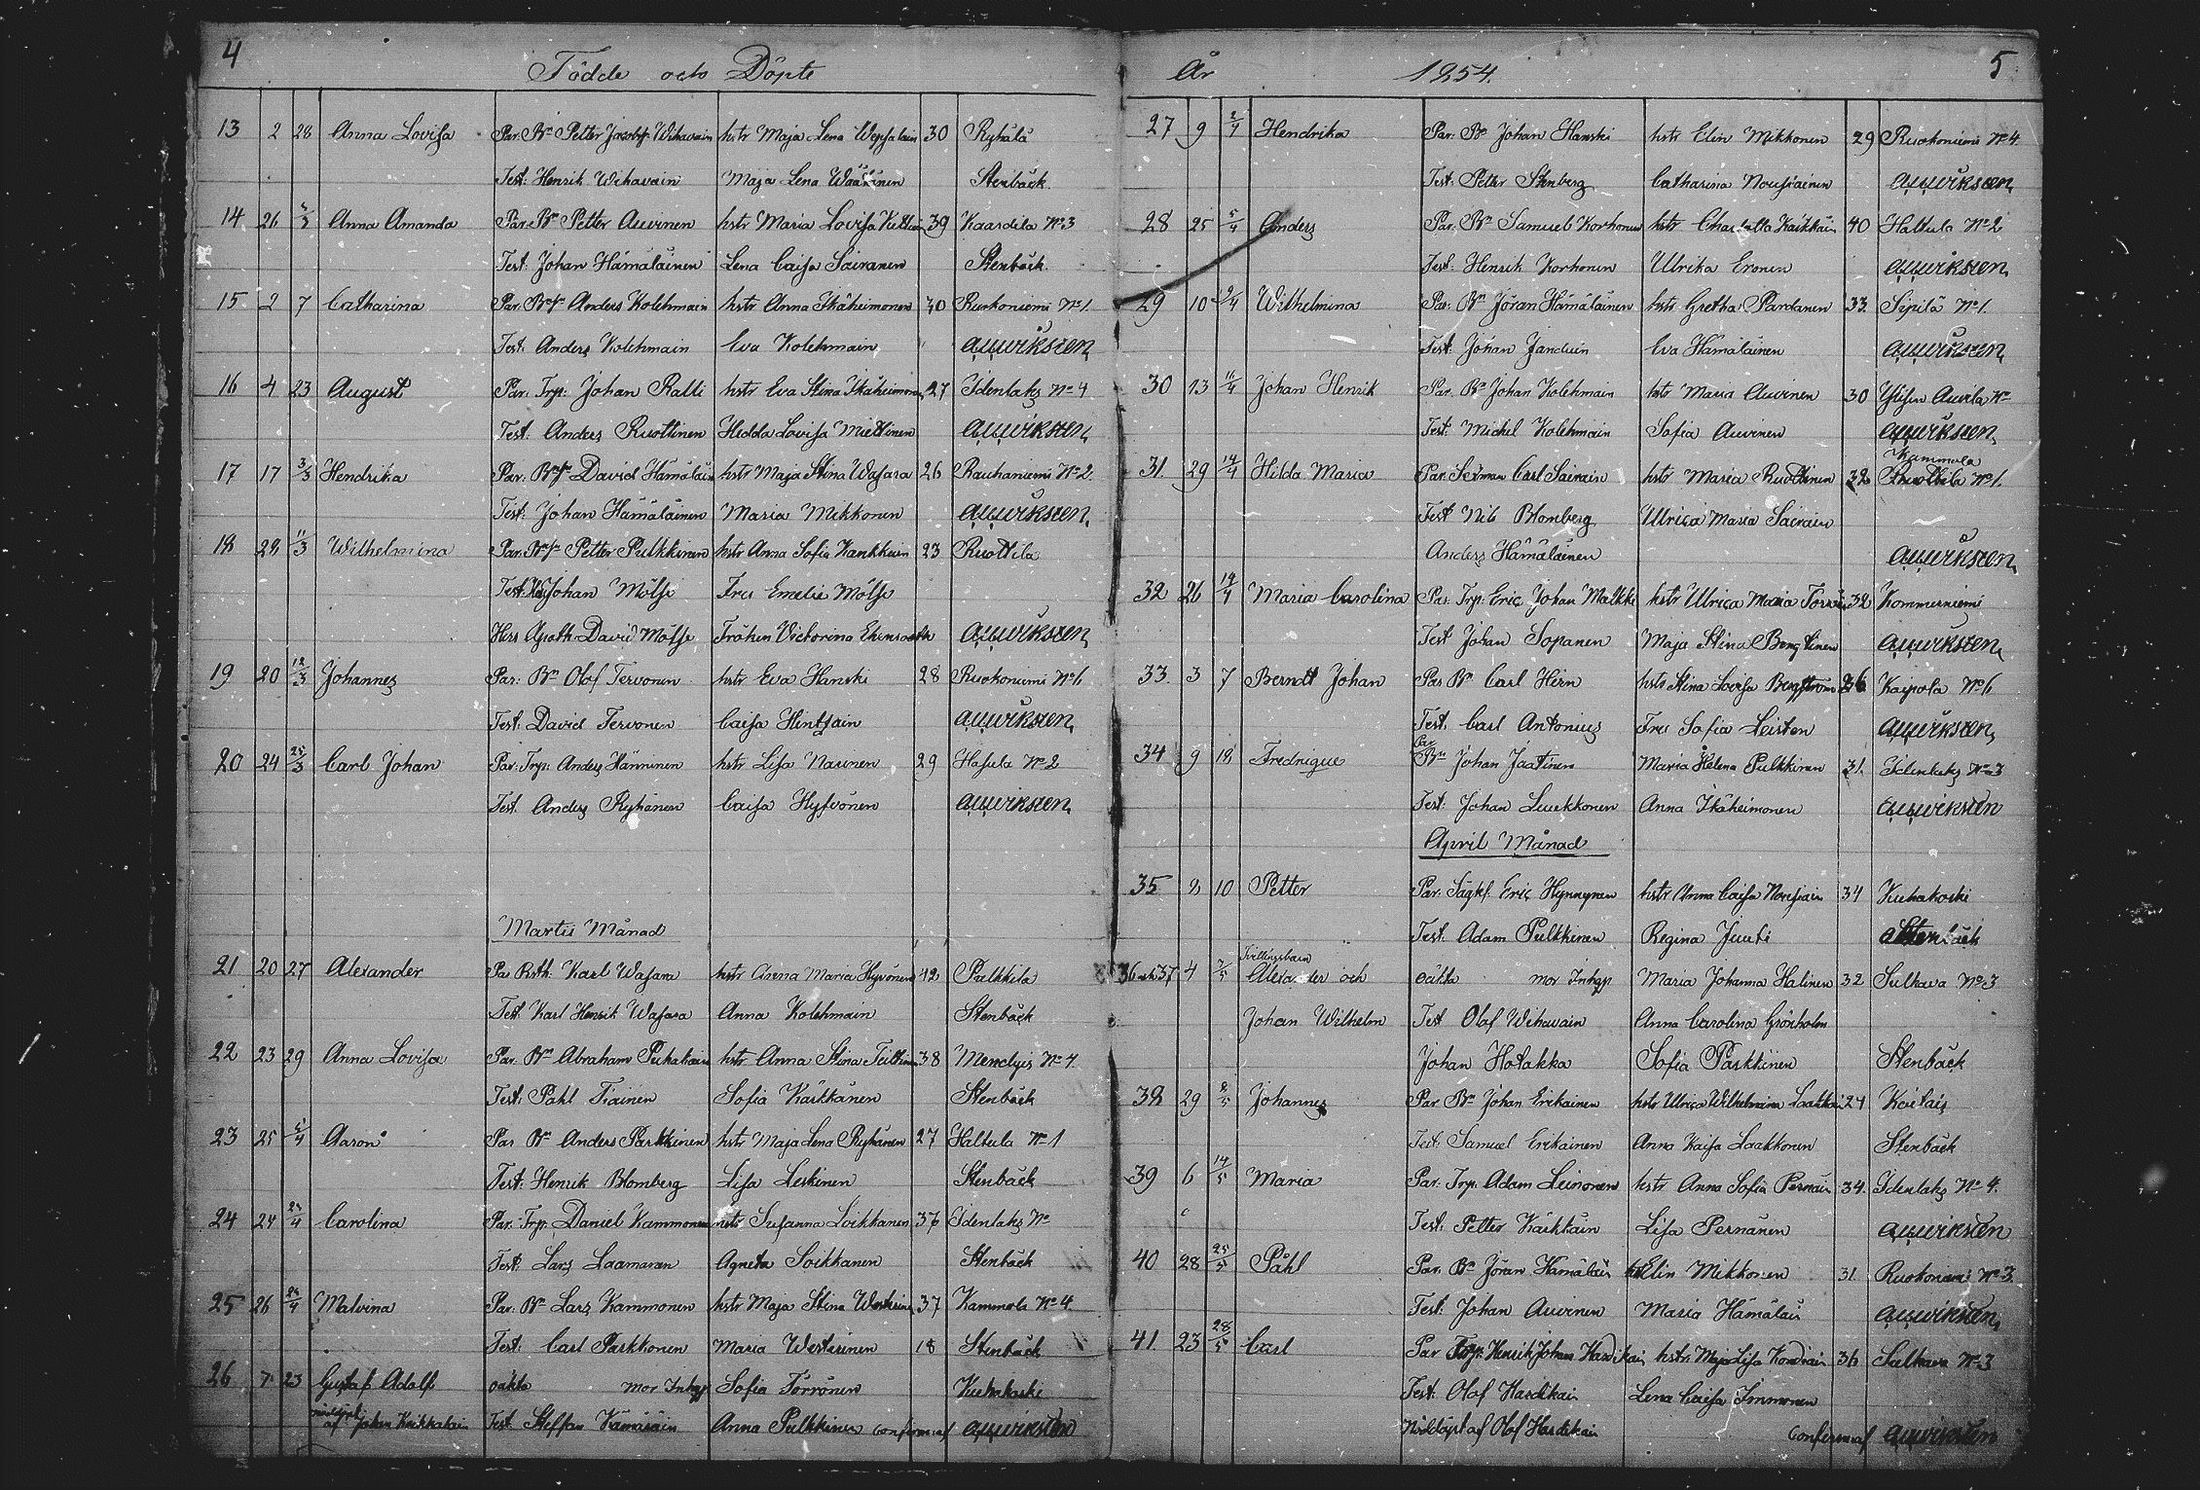 4
Födde och Döpte
13 2 28 Anna Lovisa Par. Bn Petter Jacobss. Wihavain hstr Maja Lena Wepsalain 30 Ryhälä
Test. Henrik Wihavain Maja Lena Wäätänen Stenbäck.
14 26 2/3 Anna Amanda Par. Bn Petter Auvinen hstr Maria Lovisa 39 Kaartila No 3
Test. Johan Hämäläinen Lena Caisa Sairanen Stenbäck.
15 2 7 Catharina Par. Bns Anders Kolehmain hstr Anna Ikäheimonen 30 Ruokoniemi No 1.
Test. Anders Kolehmain Eva Kolehmain
16 4 23 August Par. Trp. Johan Ralli hstr Eva Stina Ikäheimonen 27 Idenlaks No 4
Test. Anders Ruottinen Hedda Lovisa Miettinen
17 17 3/3 Hendrika Par. Bns David Hämäläin hstr Maja Stina Wasara 26 Rauhaniemi No 2.
Test. Johan Hämäläinen Maria Mikkonen
18 28 11/3 Wilhelmina Par. Bns Petter Pulkkinen hstr Anna Sofia 23 Ruottila
Test. Johan Mölsä Fru Emelie Mölsä
Herr Apoth. David Mölsä Fröken Victorina
19 20 12/3 Johannes Par. Bn Olof Tervonen hstr Eva Hanski 28 Ruokoniemi No 6
Test. David Tervonen Caisa Hintsain
20 24 25/3 Carl Johan Par. Trp. Anders Hänninen hstr Lisa Nousinen 29 Hasula No 2
Test. Anders Ryhänen Caisa Hyfvönen
Martii Månad
21 20 27 Alexander Par. Roth. Karl Wasara hstr Anna Maria Hyvönen 42 Pulkkila
Test. Karl Henrik Wasara Anna Kolehmain Stenbäck
22 23 29 Anna Lovisa Par. Bn Abraham Puhakain hstr Anna Stina 38 No 4
Test. Påhl Tiainen Sofia Kärkkänen Stenbäck
23 25 5/4 Aaron Par Bn Anders Parkkinen hstr Maja Lena Ryhänen 27 Haltula No 1
Test. Henrik Blomberg Lisa Leskinen Stenbäck
24 24 Carolina Par. Trp. Daniel Kammonen hstr Susanna Loikkanen 37 Idenlaks No
Test. Lars Laamanen Agneta Loikkanen Stenbäck
25 26 Malvina Par. Bn Lars Kammonen hstr Maja Stina 37 Kammola No 4.
Test. Carl Parkkonen Maria Westerinen 18 Stenbäck
26 7 23 Gustaf Adolf oäkta mor Inhyp Sofia Törrönen Kuhakoski
nöddöpt af Johan Test. Steffan Anna Pulkkinen confirm af
År 1854. 5
27 9 2/4 Hendrika Par. Bn Johan Hanski hstr Elin Mikkonen 29 Ruokoniemi No 4.
Test. Petter Stenberg Catharina Nousiainen
28 25 5/4 Anders Par. Bn Samuel Korhonen hstr Charlotta Kärkkäin 40 Haltula No 2
Test. Henrik Korhonen Ulrika Eronen
29 10 9/4 Wilhelmina Par. Bn Jöran Hämäläinen hstr Gretha Pardanen 33. Sipilä No 1.
Test. Johan Janduin Eva Hämäläinen
30 13 11/4 Johan Henrik Par. Bn Johan Kolehmain hstr Maria Auvinen 30 Auvila No
Test. Michel Kolehmain Sofia Auvinen
Kammola
31. 29 14/4 Hilda Maria Par. Carl Sairain hstr Maria Ruottinen 32 Ruottila No 1.
Test Nils Blomberg Ulrica Maria Sairain
Anders Hämäläinen
32 26 14/4 Maria Carolina Par. Trp. Eric Johan Malkki hstr Ulrica Maria 32 Kommerniemi
Test Johan Sopanen Maja Stina Bengtinen
33. 3 7 Berndt Johan Par Bn Carl Hirn hstr Stina Lovisa Bergström 26 Kaipola No 6
Test. Carl Antonius Fru Sofia Leisten
34 9 18 Fredrique Par Bn Johan Jaatinen Maria Helena Pulkkinen 31. Idenlaks No 3
Test: Johan Luukkonen Anna Ikäheimonen
April Månad
35 2 10 Petter Par. Sågkl. Eric Hynnynen hstr Anna Caisa Nousiain 34 Kuhakoski
Test. Adam Pulkkinen Regina Juuti Stenbäck
Tvillingbarn
36 och 37 4 7/5 Alexander och oäkta mor Inhyp Maria Johanna Halinen 32 Sulkava No 3
Johan Wilhelm Test Olof Wihavain Anna Carolina Grönholm
Johan Hotakka Sofia Parkkinen Stenbäck
38 29 8/5 Johannes Par Bn Johan Erikainen hstr Ulrica Wilhelmina 24
Test. Samuel Erikainen Anna Kaisa Laakkonen Stenbäck
39 6 14/5 Maria Par. Trp. Adam Leinonen hstr Anna Sofia Pernäin 34. Idenlaks No 4.
Test. Petter Kärkkäin Lisa Pernänen
40 28 25/5 Påhl Par. Bn Jöran Hämäläin hstr Elin Mikkonen 31. Ruokoniemi No 3.
Test. Johan Auvinen Maria Hämäläin
41. 23 28/5 Carl Par Trp. Henrik Johan Hardikain hstr Maja Lisa 36 Sulkava No 3
Test. Olof Hardikai Lena Caisa Immonen
Nöddöpt af Olof Hardikai Confirm af